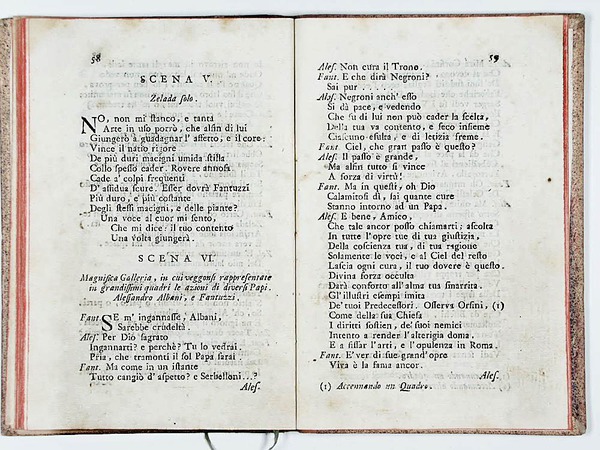 58
SCENA V.
Zelada solo.
NO, non mi stanco, e tanta
Arte in uso porrò, che alfin di lui
Giungerò a guadagnar l'affetto, e il core:
Vince il natio rigore
De più duri macigni umida stilla
Collo spesso cader. Rovere annosa
Cade a' colpi frequenti
D'assidua scure. Esser dovrà Fantuzzi
Più duro, e più costante
Degli stessi macigni, e delle piante?
Una voce al cuor mi sento,
Che mi dice: il tuo contento
Una volta giungerà.
SCENA VI.
Magnifica Galleria, in cui veggonsi rappresentate
in grandissimi quadri le azioni di diversi Papi.
Alessandro Albani, e Fantuzzi.
Fant. SE m'ingannasse, Albani,
Sarebbe crudeltà.
Ales. Per Dio sagrato
Ingannarti? e perchè? Tu lo vedrai.
Pria, che tramonti il sol Papa sarai
Fant. Ma come in un istante
Tutto cangiò d'aspetto? e Serbelloni...?
Ales.
59
Ales. Non cura il Trono.
Fant. E che dirà Negroni?
Sai pur . . . . .
Ales. Negroni anch' esso
Si dà pace, e vedendo
Che su di lui non può cader la scelta,
Della tua va contento, e seco insieme
Ciascuno esulta, e di letizia freme.
Fant. Ciel, che gran passo è questo?
Ales. Il passo è grande,
Ma alfin tutto si vince
A forza di virtù!
Fant. Ma in questi, oh Dio
Calamitosi dì, sai quante cure
Stanno intorno ad un Papa.
Ales. E bene, Amico,
Che tale ancor posso chiamarti: ascolta
In tutte l'opre tue di tua giustizia,
Della coscienza tua, di tua ragione
Solamente le voci, e al Ciel del resto
Lascia ogni cura, il tuo dovere è questo.
Divina forza occulta
Darà conforto all'alma tua smarrita.
Gl'illustri esempi imita
De' tuoi Predecessori. Osserva Orsini, (1)
Come della sua Chiesa
I diritti sostien, de' suoi nemici
Intento a render l'alterigia doma.
E a fissar l'arti, e l'opulenza in Roma.
Fant. E' ver di sue grand' opre
Viva è la fama ancor.
Ales.
(1) Accennando un Quadro.